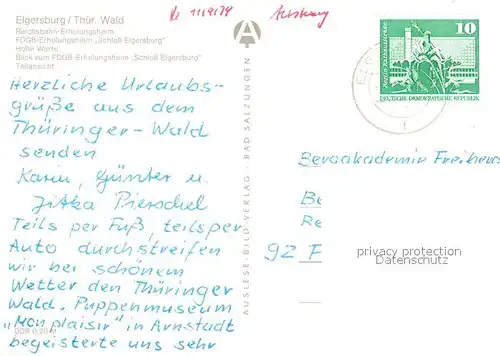 Elgersburg / Thür. Wald
Reichsbahn-Erholungsheim
FDGB-Erholungsheim „Schloß Elgersburg"
Hohe Warte
Blick vom FDGB-Erholungsheim „Schloß Elgersburg"
Teilansicht
Herzliche Urlaubs-
grüße aus dem
Thüringer-Wald
senden
Karin, Günter u.
Jitka Pierschel
Teils per Fuß, teils per
Auto durchstreifen
wir bei schönem
Wetter den Thüringer
Wald. Puppenmuseum
„Mon plaisir" in Arnstadt
begeisterte uns sehr
DDR 0,20 M
AUSLESE-BILD-VERLAG · BAD SALZUNGEN
A
10
Berlin Rathausstraße
DEUTSCHE DEMOKRATISCHE REPUBLIK
Bergakademie Freiberg
Be
Re
92 F
privacy protection
Datenschutz